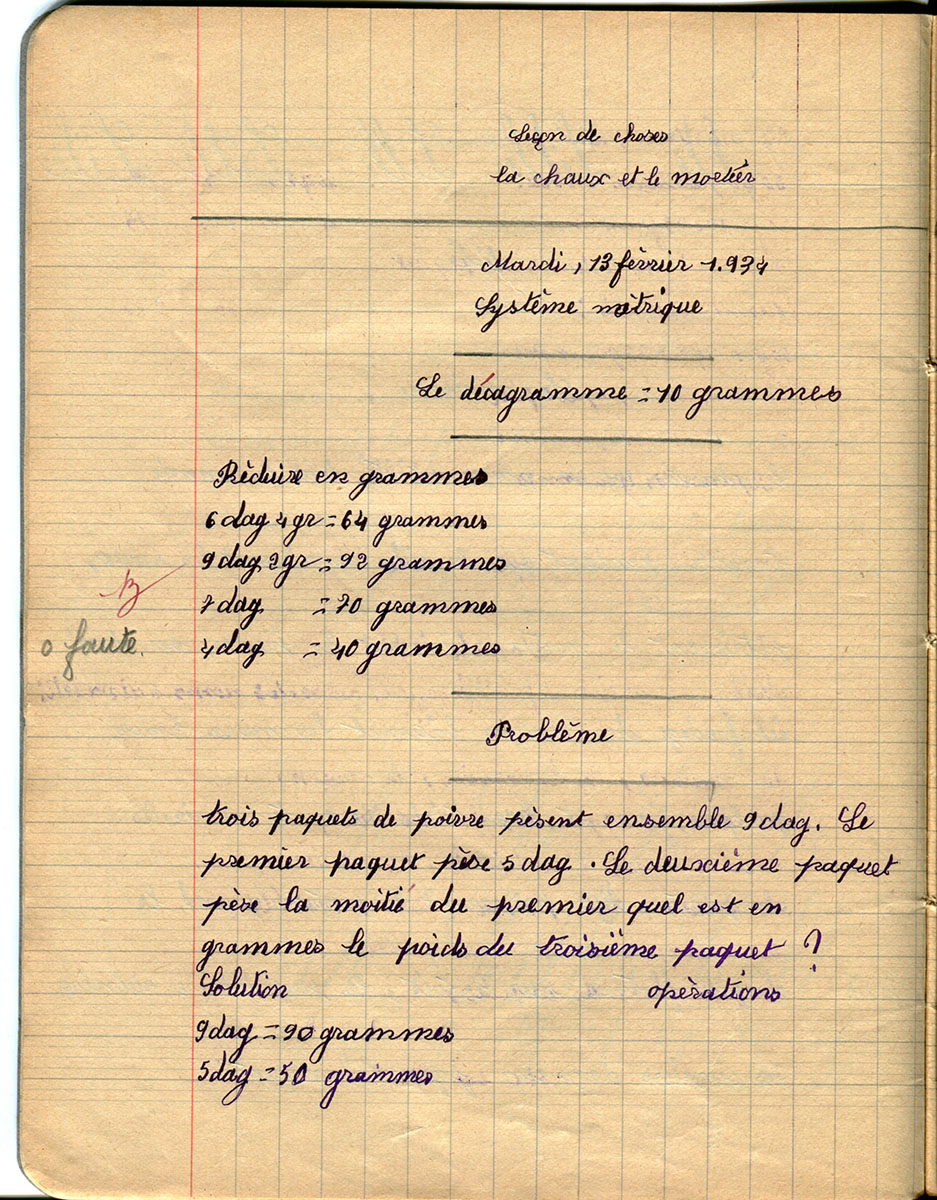 Leçon de choses
la chaux et le mortier
Mardi, 13 février 1.934
Système métrique
Le décagramme = 10 grammes
Réduire en grammes
6 dag 4 gr = 64 grammes
9 dag 2 gr = 92 grammes
7 dag = 70 grammes
B
4 dag = 40 grammes
0 faute.
Problème
trois paquets de poivre pèsent ensemble 9 dag. Le
premier paquet pèse 5 dag. Le deuxième paquet
pèse la moitié du premier quel est en
grammes le poids du troisième paquet ?
Solution opérations
9 dag = 90 grammes
5 dag = 50 grammes